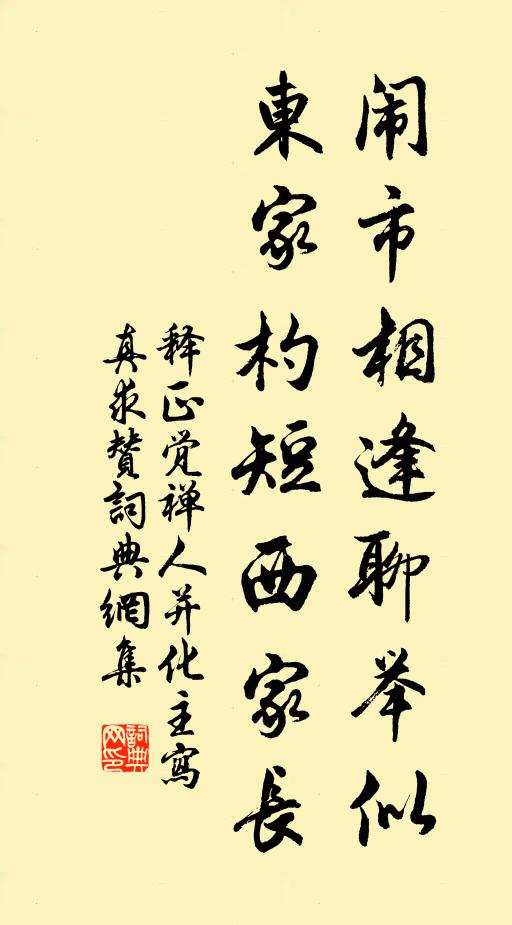 闹市相逢聊举似
東家杓短西家長
释正觉禅人并化主寫
真求赞詞典網集
詞典
网印